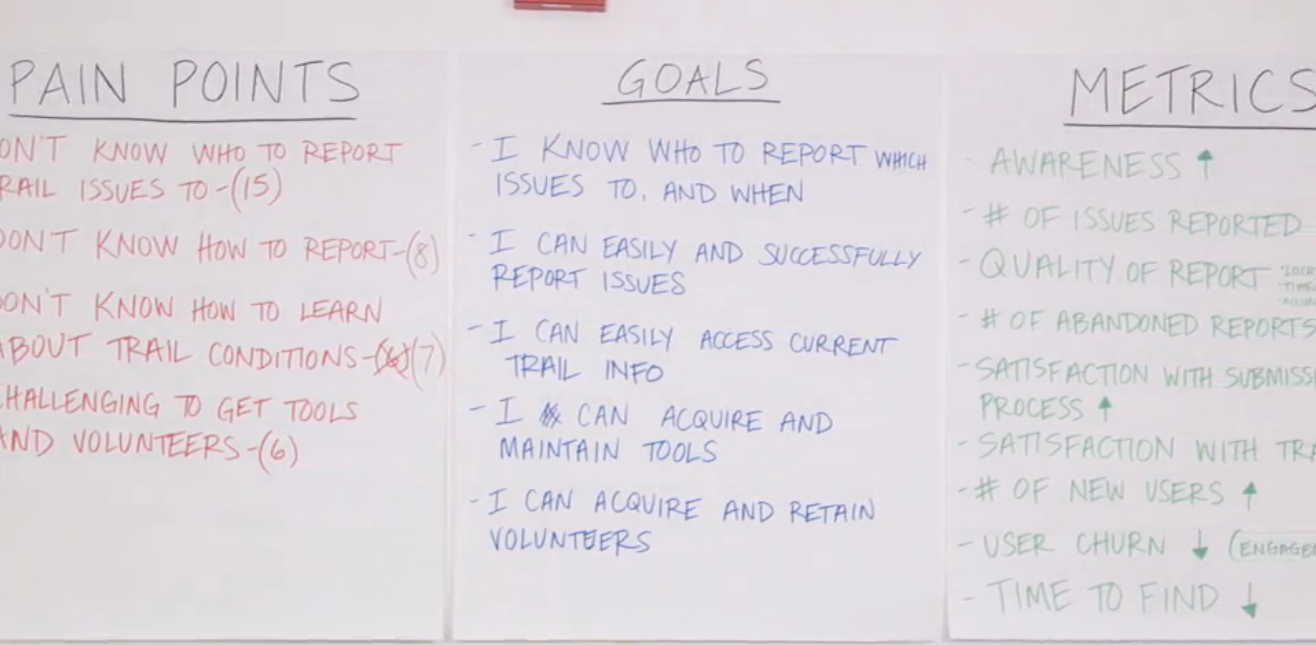 PAIN POINTS
ON'T KNOW WHO TO REPORT
RAIL ISSUES TO -(15)
DON'T KNOW HOW TO REPORT-(8)
ON'T KNOW HOW TO LEARN
ABOUT TRAIL CONDITIONS-(7)
CHALLENGING TO GET TOOLS
AND VOLUNTEERS-(6)
GOALS
- I KNOW WHO TO REPORT WHICH
ISSUES TO, AND WHEN
- I CAN EASILY AND SUCCESSFULLY
REPORT ISSUES
- I CAN EASILY ACCESS CURRENT
TRAIL INFO
- I CAN ACQUIRE AND
MAINTAIN TOOLS
- I CAN ACQUIRE AND RETAIN
VOLUNTEERS
METRICS
- AWARENESS ↑
- # OF ISSUES REPORTED
- QUALITY OF REPORT
- # OF ABANDONED REPORTS
- SATISFACTION WITH SUBMISSI
PROCESS ↑
- SATISFACTION WITH TRA
- # OF NEW USERS ↑
- USER CHURN ↓ (ENGAGE
- TIME TO FIND ↓